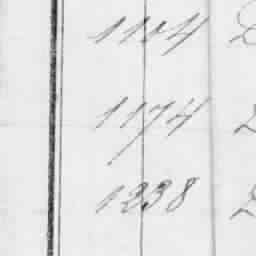 1104
1174
1238